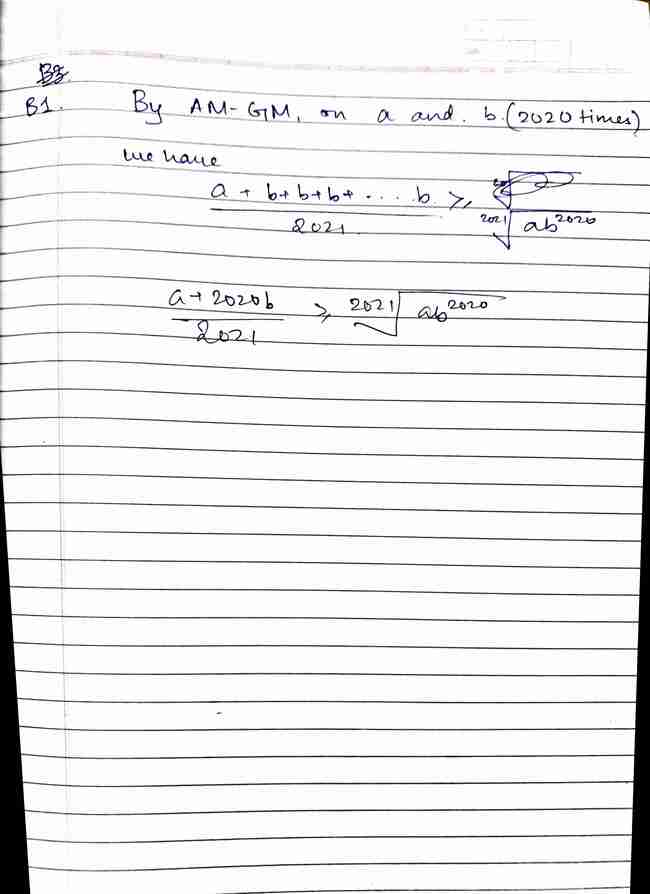 B1. By AM-GM, on a and. b.(2020 times)
we have
a + b+b+b+ ..... b. / 2021. ≥ ²⁰²¹√ab²⁰²⁰
a+2020b / 2021 ≥ ²⁰²¹√ab²⁰²⁰